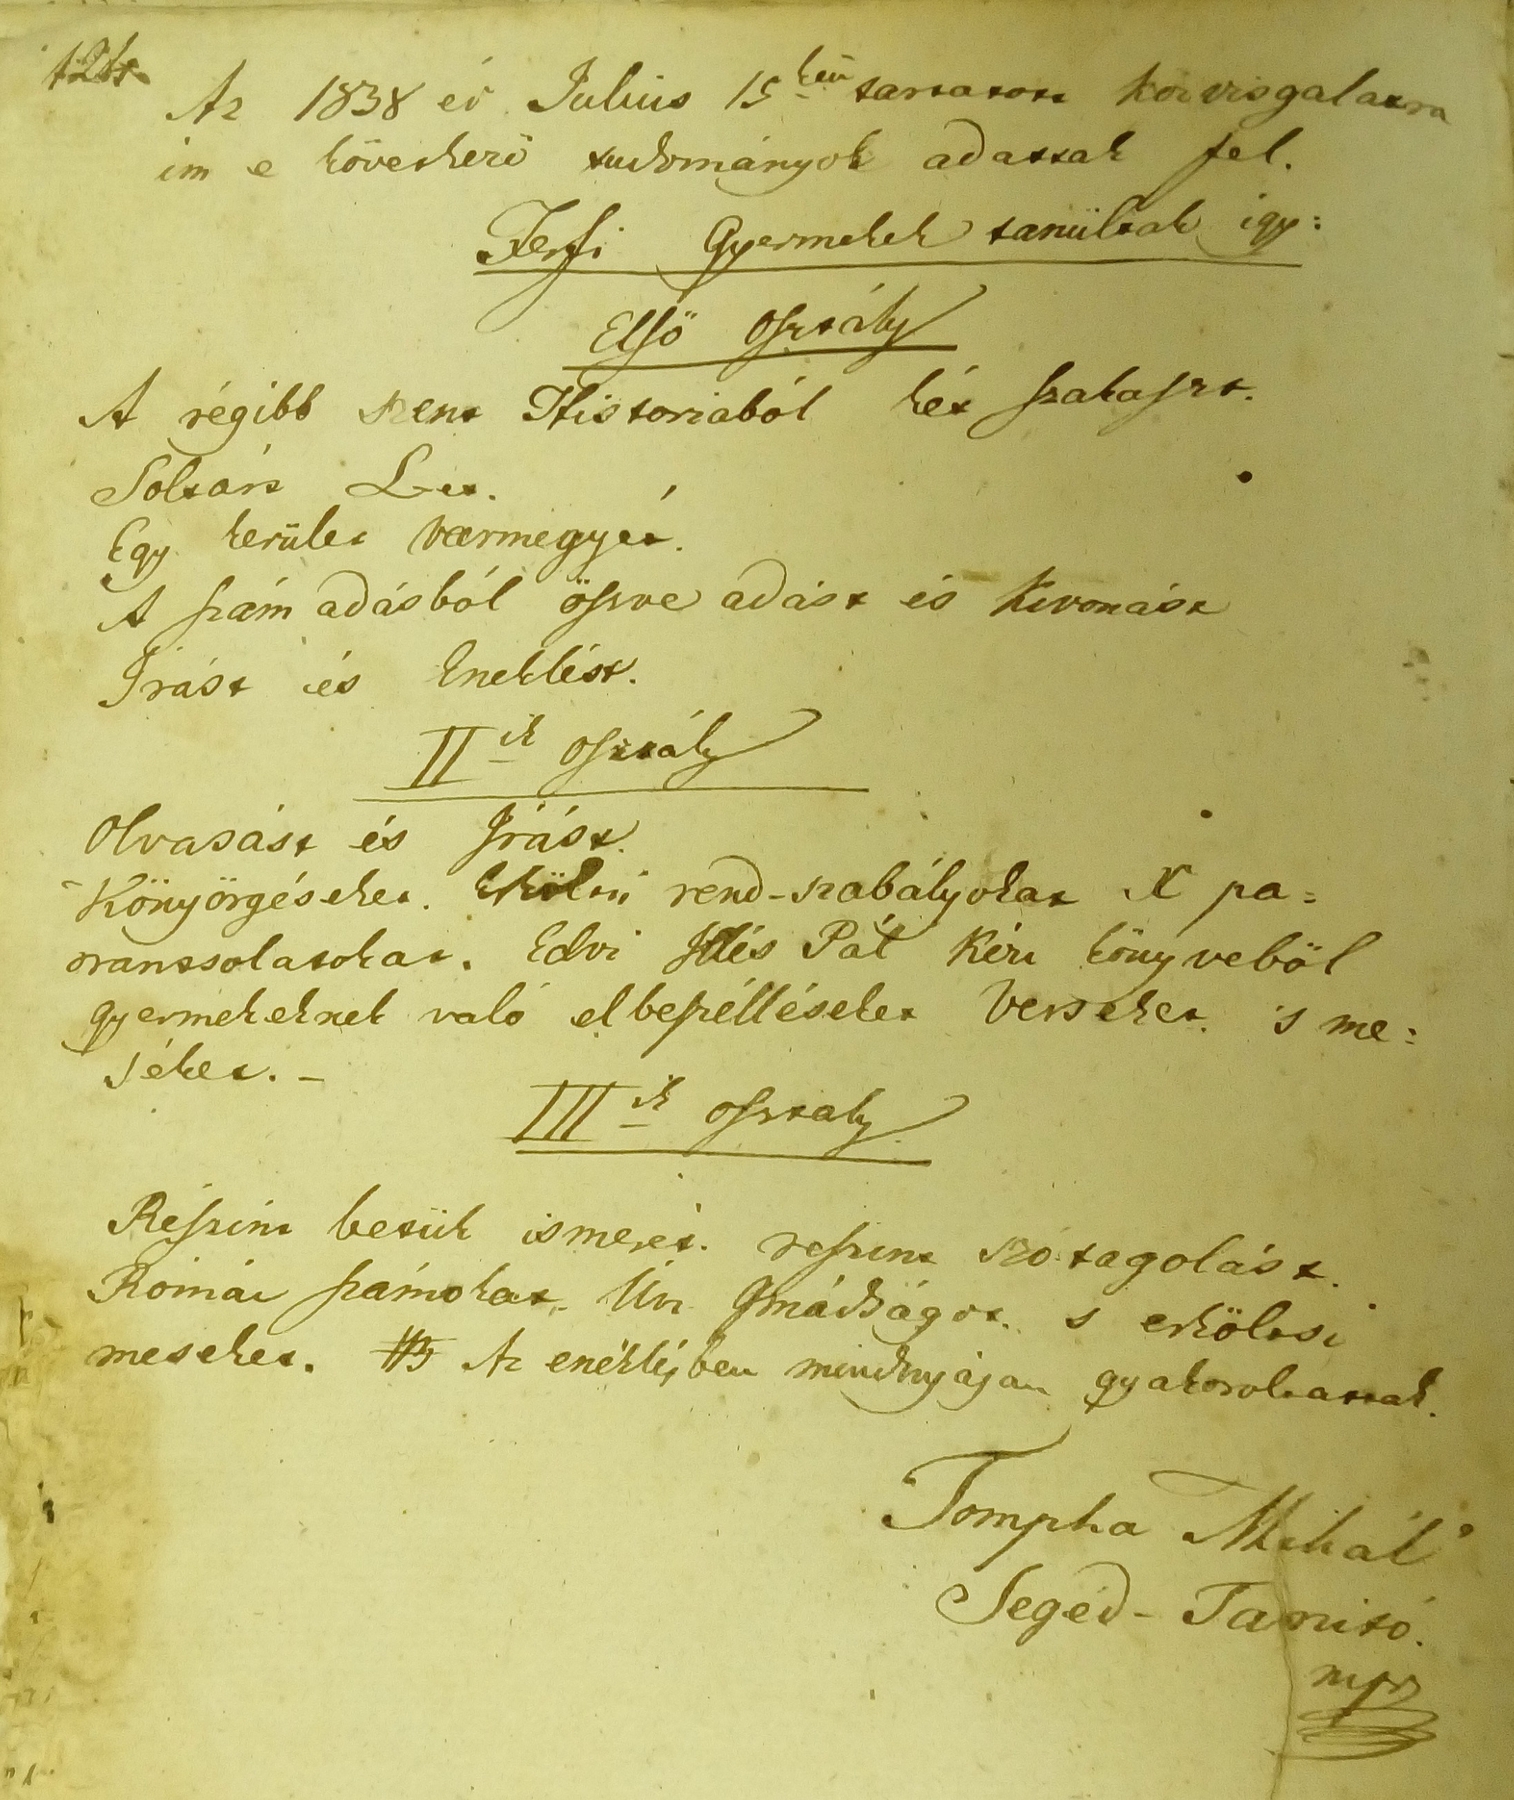 Az 1838 év Julius 15kén tartatott köz visgalatra
im e következő tudományok adattak fel.
Férfi Gyermekek tanúltak igy:
Elsö Osztály
A régibb szent Historiaból két szakaszt.
Soltárt
Egy kerület vármegyét.
A szám adásból öszve adást és kivonást
Irást és Eneklést.
IIik osztály
Olvasást és Irást.
Könyörgéseket. Erkölcsi rend-szabályokat X pa=
rantsolatokat. Edvi Illés Pál Kézi könyveböl
gyermekeknek való elbeszélléseket Verseket. 's me=
séket. –
IIIik osztaly
Részint betük ismeret. reszint szó tagolást.
Római számokat. Úri Imádságot. s erkölcsi
meseket. Az enéklésben mindnyájan gyakoroltattak.
Tompha Mihál
Segéd-Tanitó.
mpr